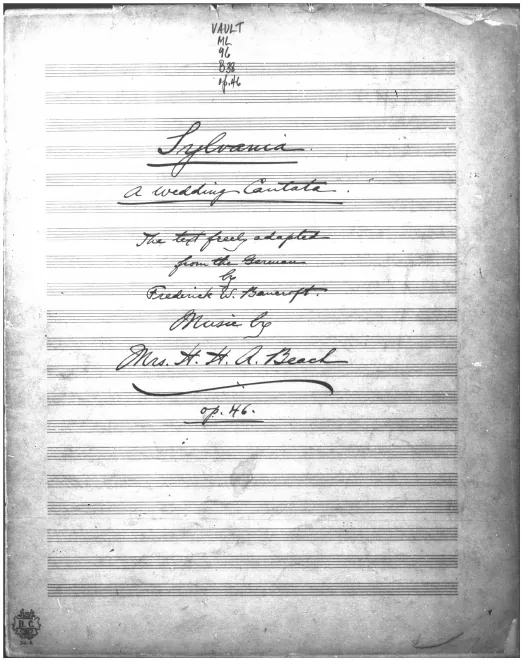 VAULT
ML
96
B38
op.46
Sylvania.
A Wedding Cantata.
The text freely adapted
from the German
by
Frederick W. Bancroft.
Music by
Mrs. H. H. A. Beach
op. 46.